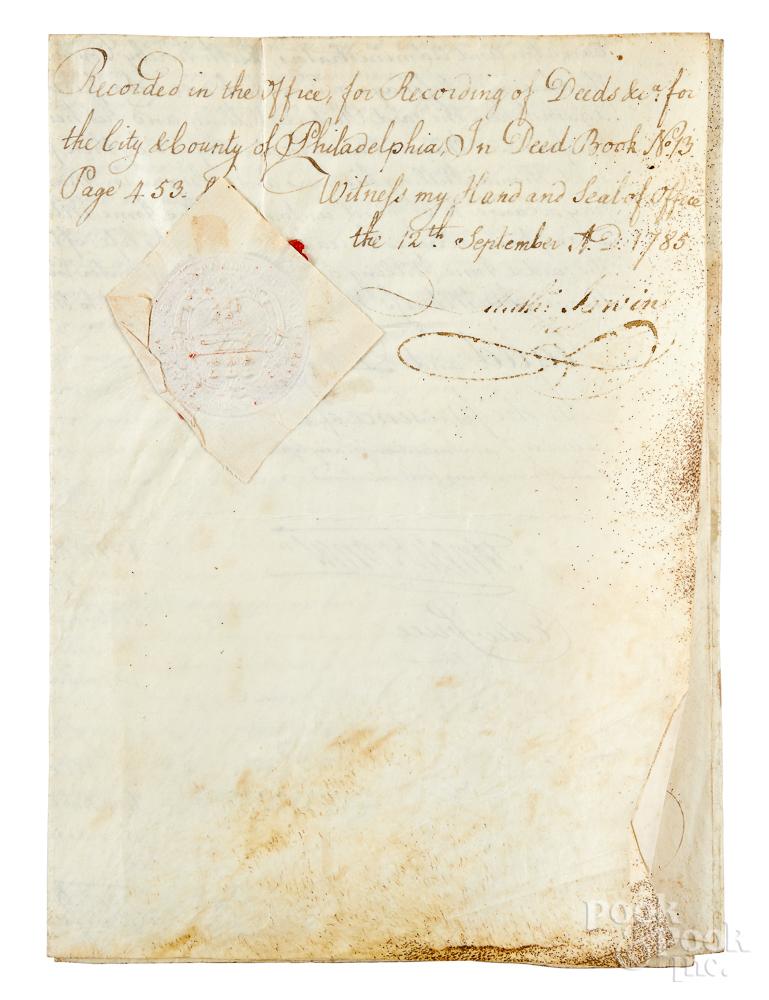 Recorded in the Office, for Recording of Deeds &c.a for
the City & County of Philadelphia, In Deed Book No. 13
Page 453.
Witness my Hand and Seal of Office
the 12th September A.D. 1785
Pook & Pook
Inc.